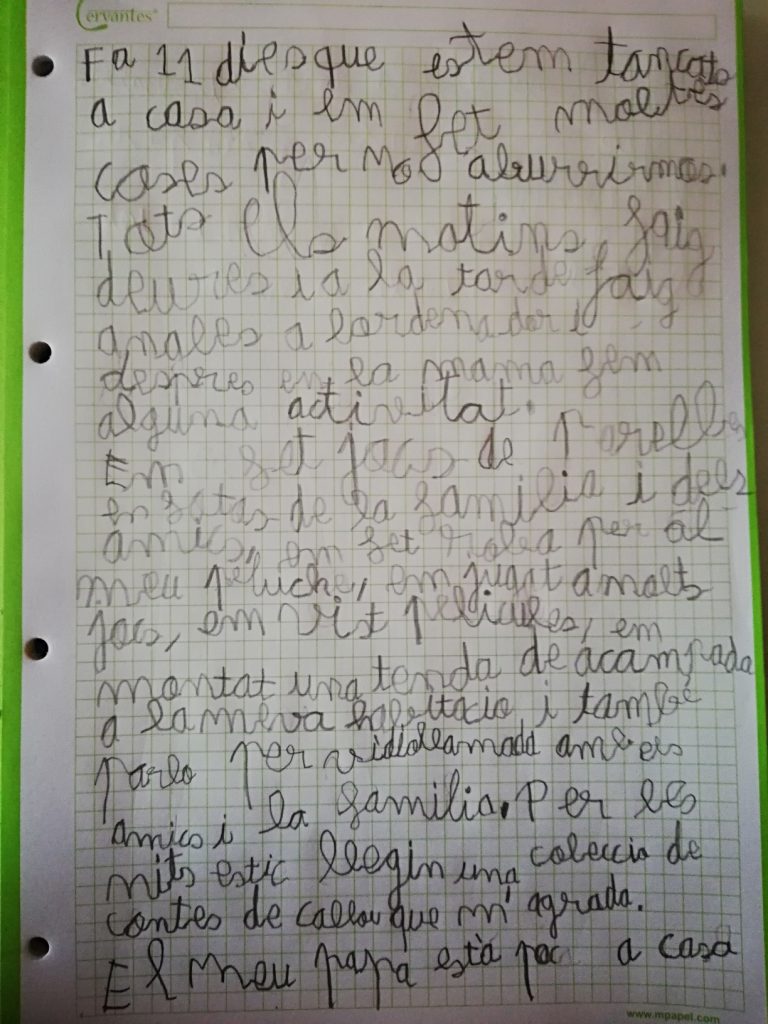 Cervantes
Fa 11 dies que estem tancats
a casa i em fet moltes
coses per no aburrirmos.
Tots els matins, faig
deures i a la tarde faig
anales a lordenador i
despres en la mama fem
alguna activitat.
Em fet jocs de parelles
en fotos de la familia i dels
amics, em fet roba per al
meu peluche, em jugat a molts
jocs, em vist pelicules, em
montat una tenda de acampada
a la meva habitacio i també
parlo per amb els
amics i la familia. Per les
nits estic llegin una coleccio de
contes de caillou que m'agrada.
El meu papa està poc a casa
www.mpapel.com